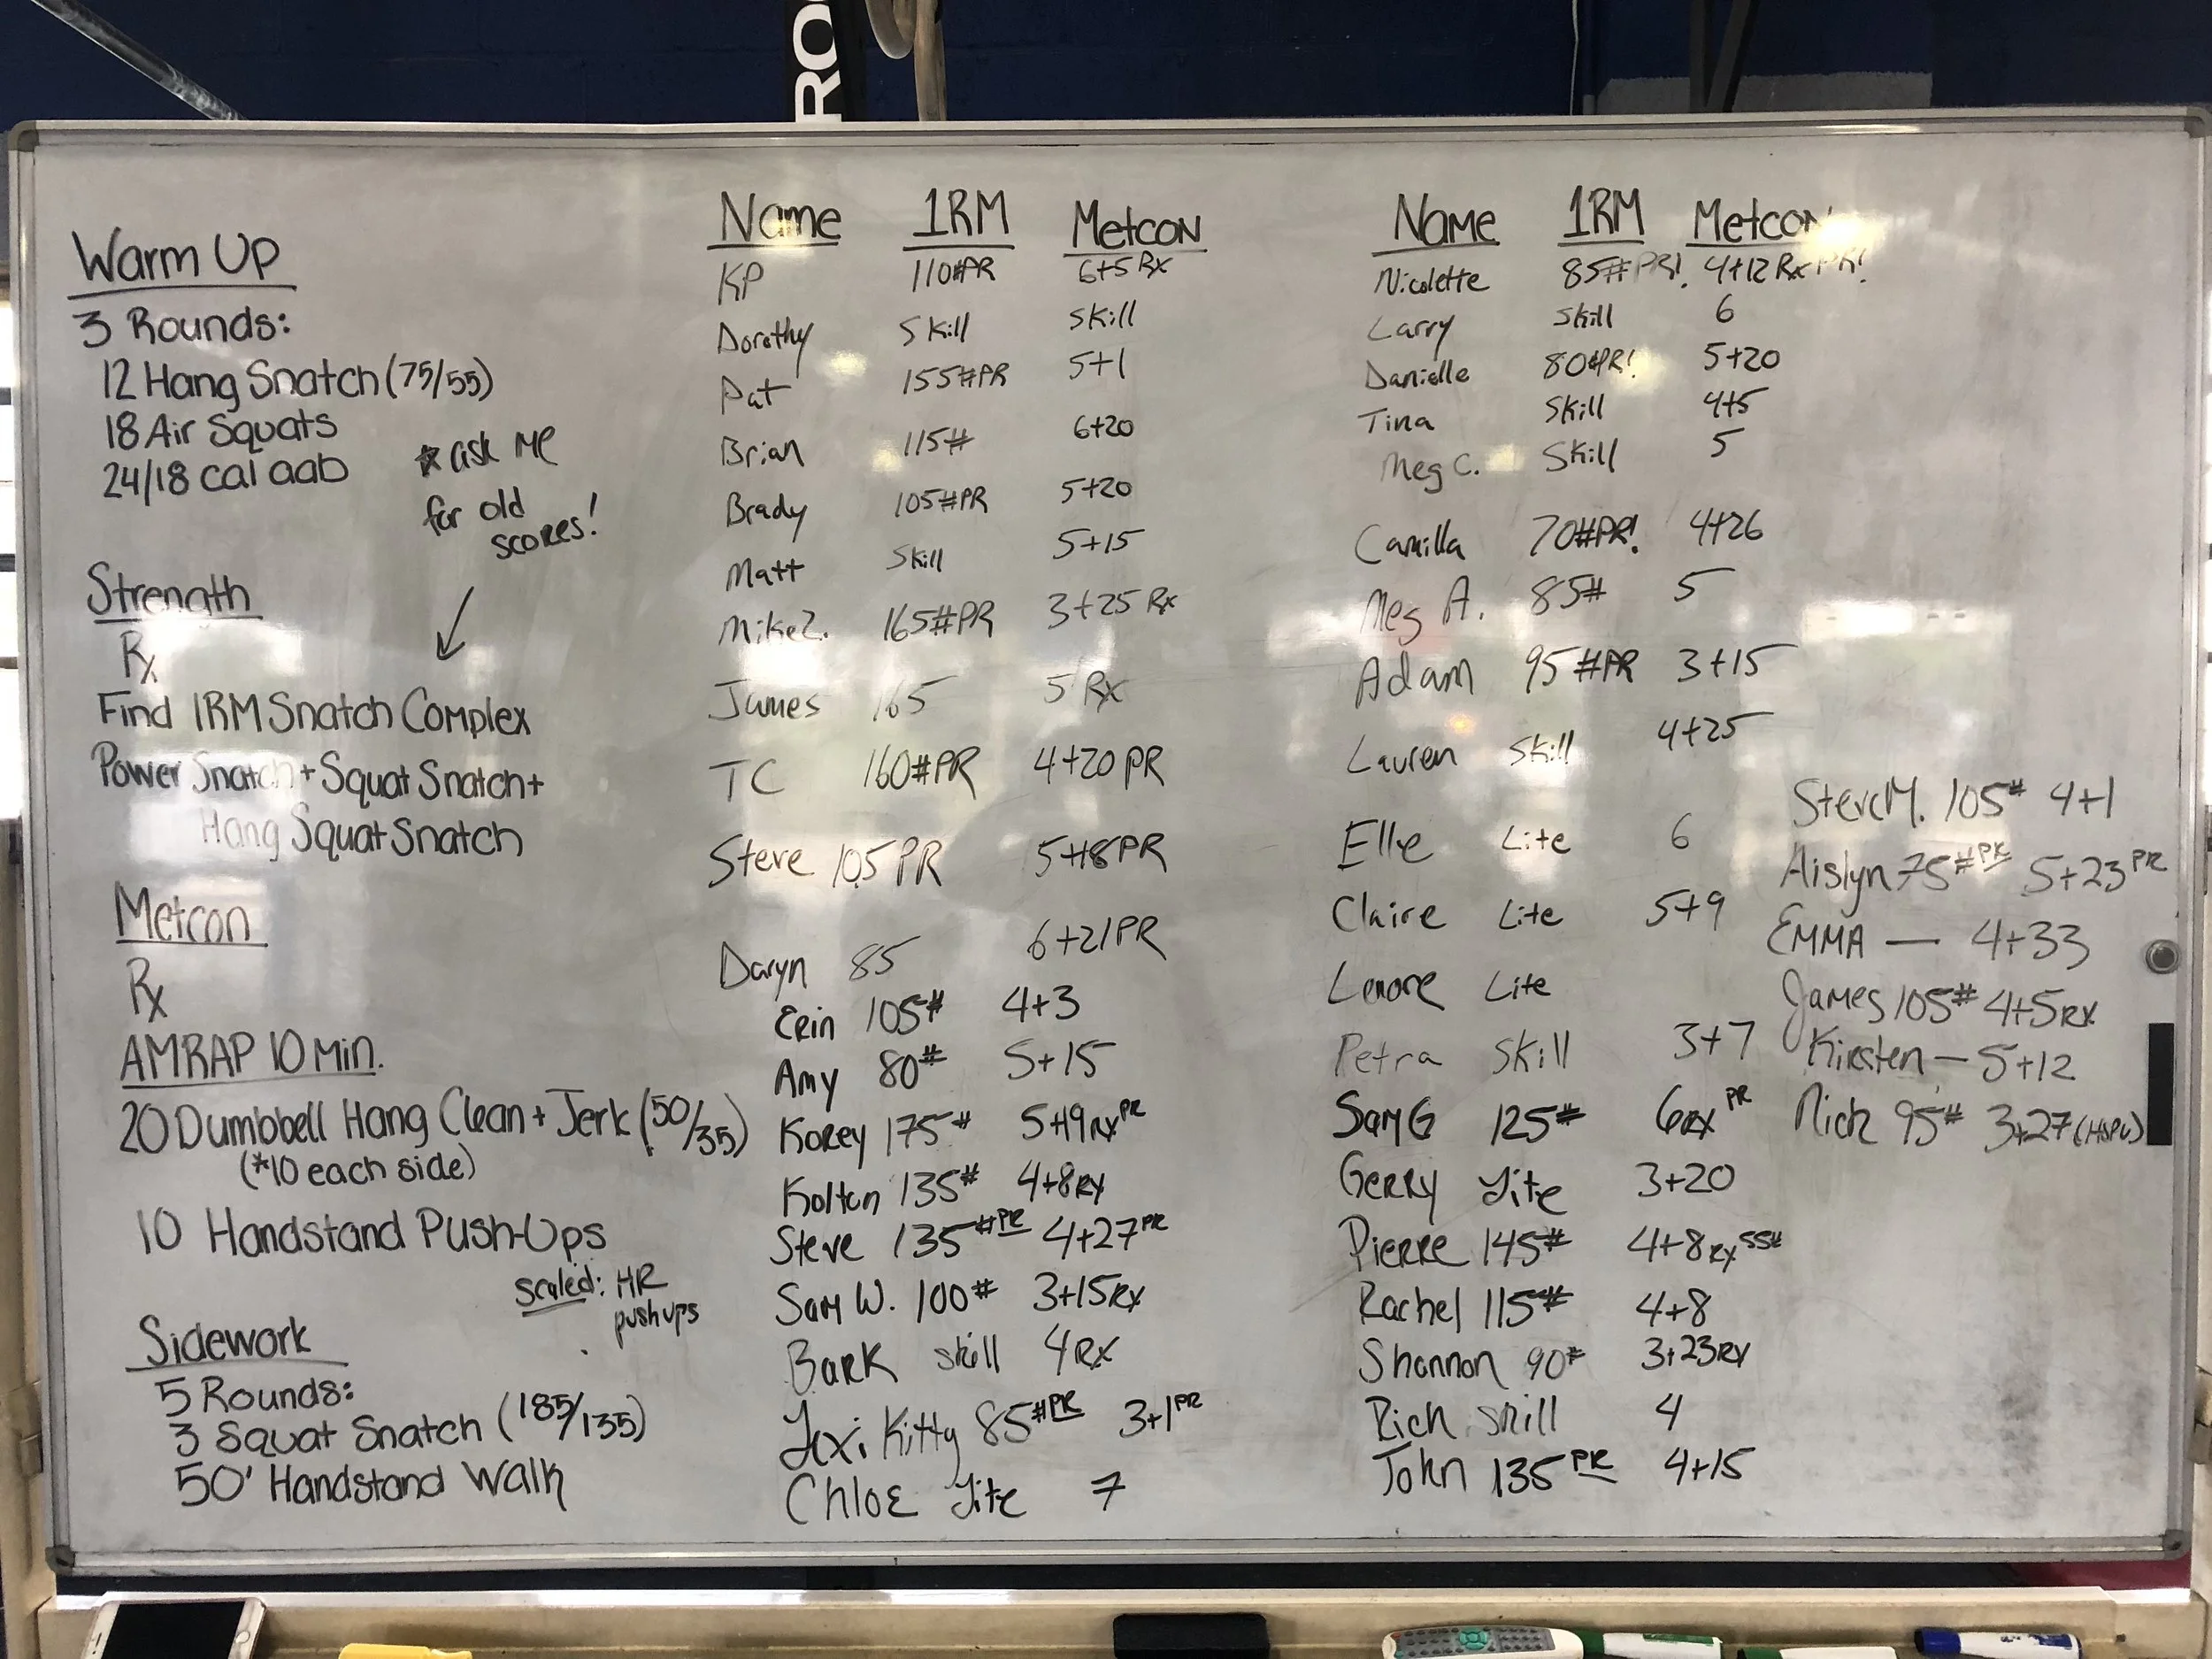 RO
Warm Up
3 Rounds:
12 Hang Snatch (75/55)
18 Air Squats
24/18 cal aab
* ask me
for old
scores!
Strength
Rx
Find 1RM Snatch Complex
Power Snatch + Squat Snatch +
Hang Squat Snatch
Metcon
Rx
AMRAP 10 Min.
20 Dumbbell Hang Clean + Jerk (50/35)
(*10 each side)
10 Handstand Push-Ups
scaled: HR
pushups
Sidework
5 Rounds:
3 Squat Snatch (185/135)
50' Handstand Walk
Name 1RM Metcon
KP 110#PR 6+5 Rx
Dorothy Skill Skill
Pat 155#PR 5+1
Brian 115# 6+20
Brady 105#PR 5+20
Matt Skill 5+15
Mike Z. 165#PR 3+25 Rx
James 165 5 Rx
TC 160#PR 4+20 PR
Steve 105 PR 5+18 PR
Daryn 85 6+21 PR
Erin 105# 4+3
Amy 80# 5+15
Korey 175# 5+19 RX PR
Kolton 135# 4+8 RX
Steve 135# PR 4+27 PR
Sam W. 100# 3+15 RX
Bark skill 4 RX
Lexi Kitty 85# PR 3+1 PR
Chloe Lite 7
Name 1RM Metcon
Nicolette 85# PR! 4+12 Rx PR!
Larry Skill 6
Danielle 80#PR! 5+20
Tina Skill 4+5
Meg C. Skill 5
Camilla 70#PR! 4+26
Meg A. 85# 5
Adam 95#PR 3+15
Lauren Skill 4+25
Elle Lite 6
Claire Lite 5+9
Lenore Lite
Petra Skill 3+7
Sam G 125# 6 RX PR
Gerry Lite 3+20
Pierre 145# 4+8 RX 55#
Rachel 115# 4+8
Shannon 90# 3+23 RX
Rich skill 4
John 135 PR 4+15
Steve M. 105# 4+1
Aislyn 75# PR 5+23 PR
Emma — 4+33
James 105# 4+5 RX
Kirsten — 5+12
Nick 95# 3+27 (HSPU)